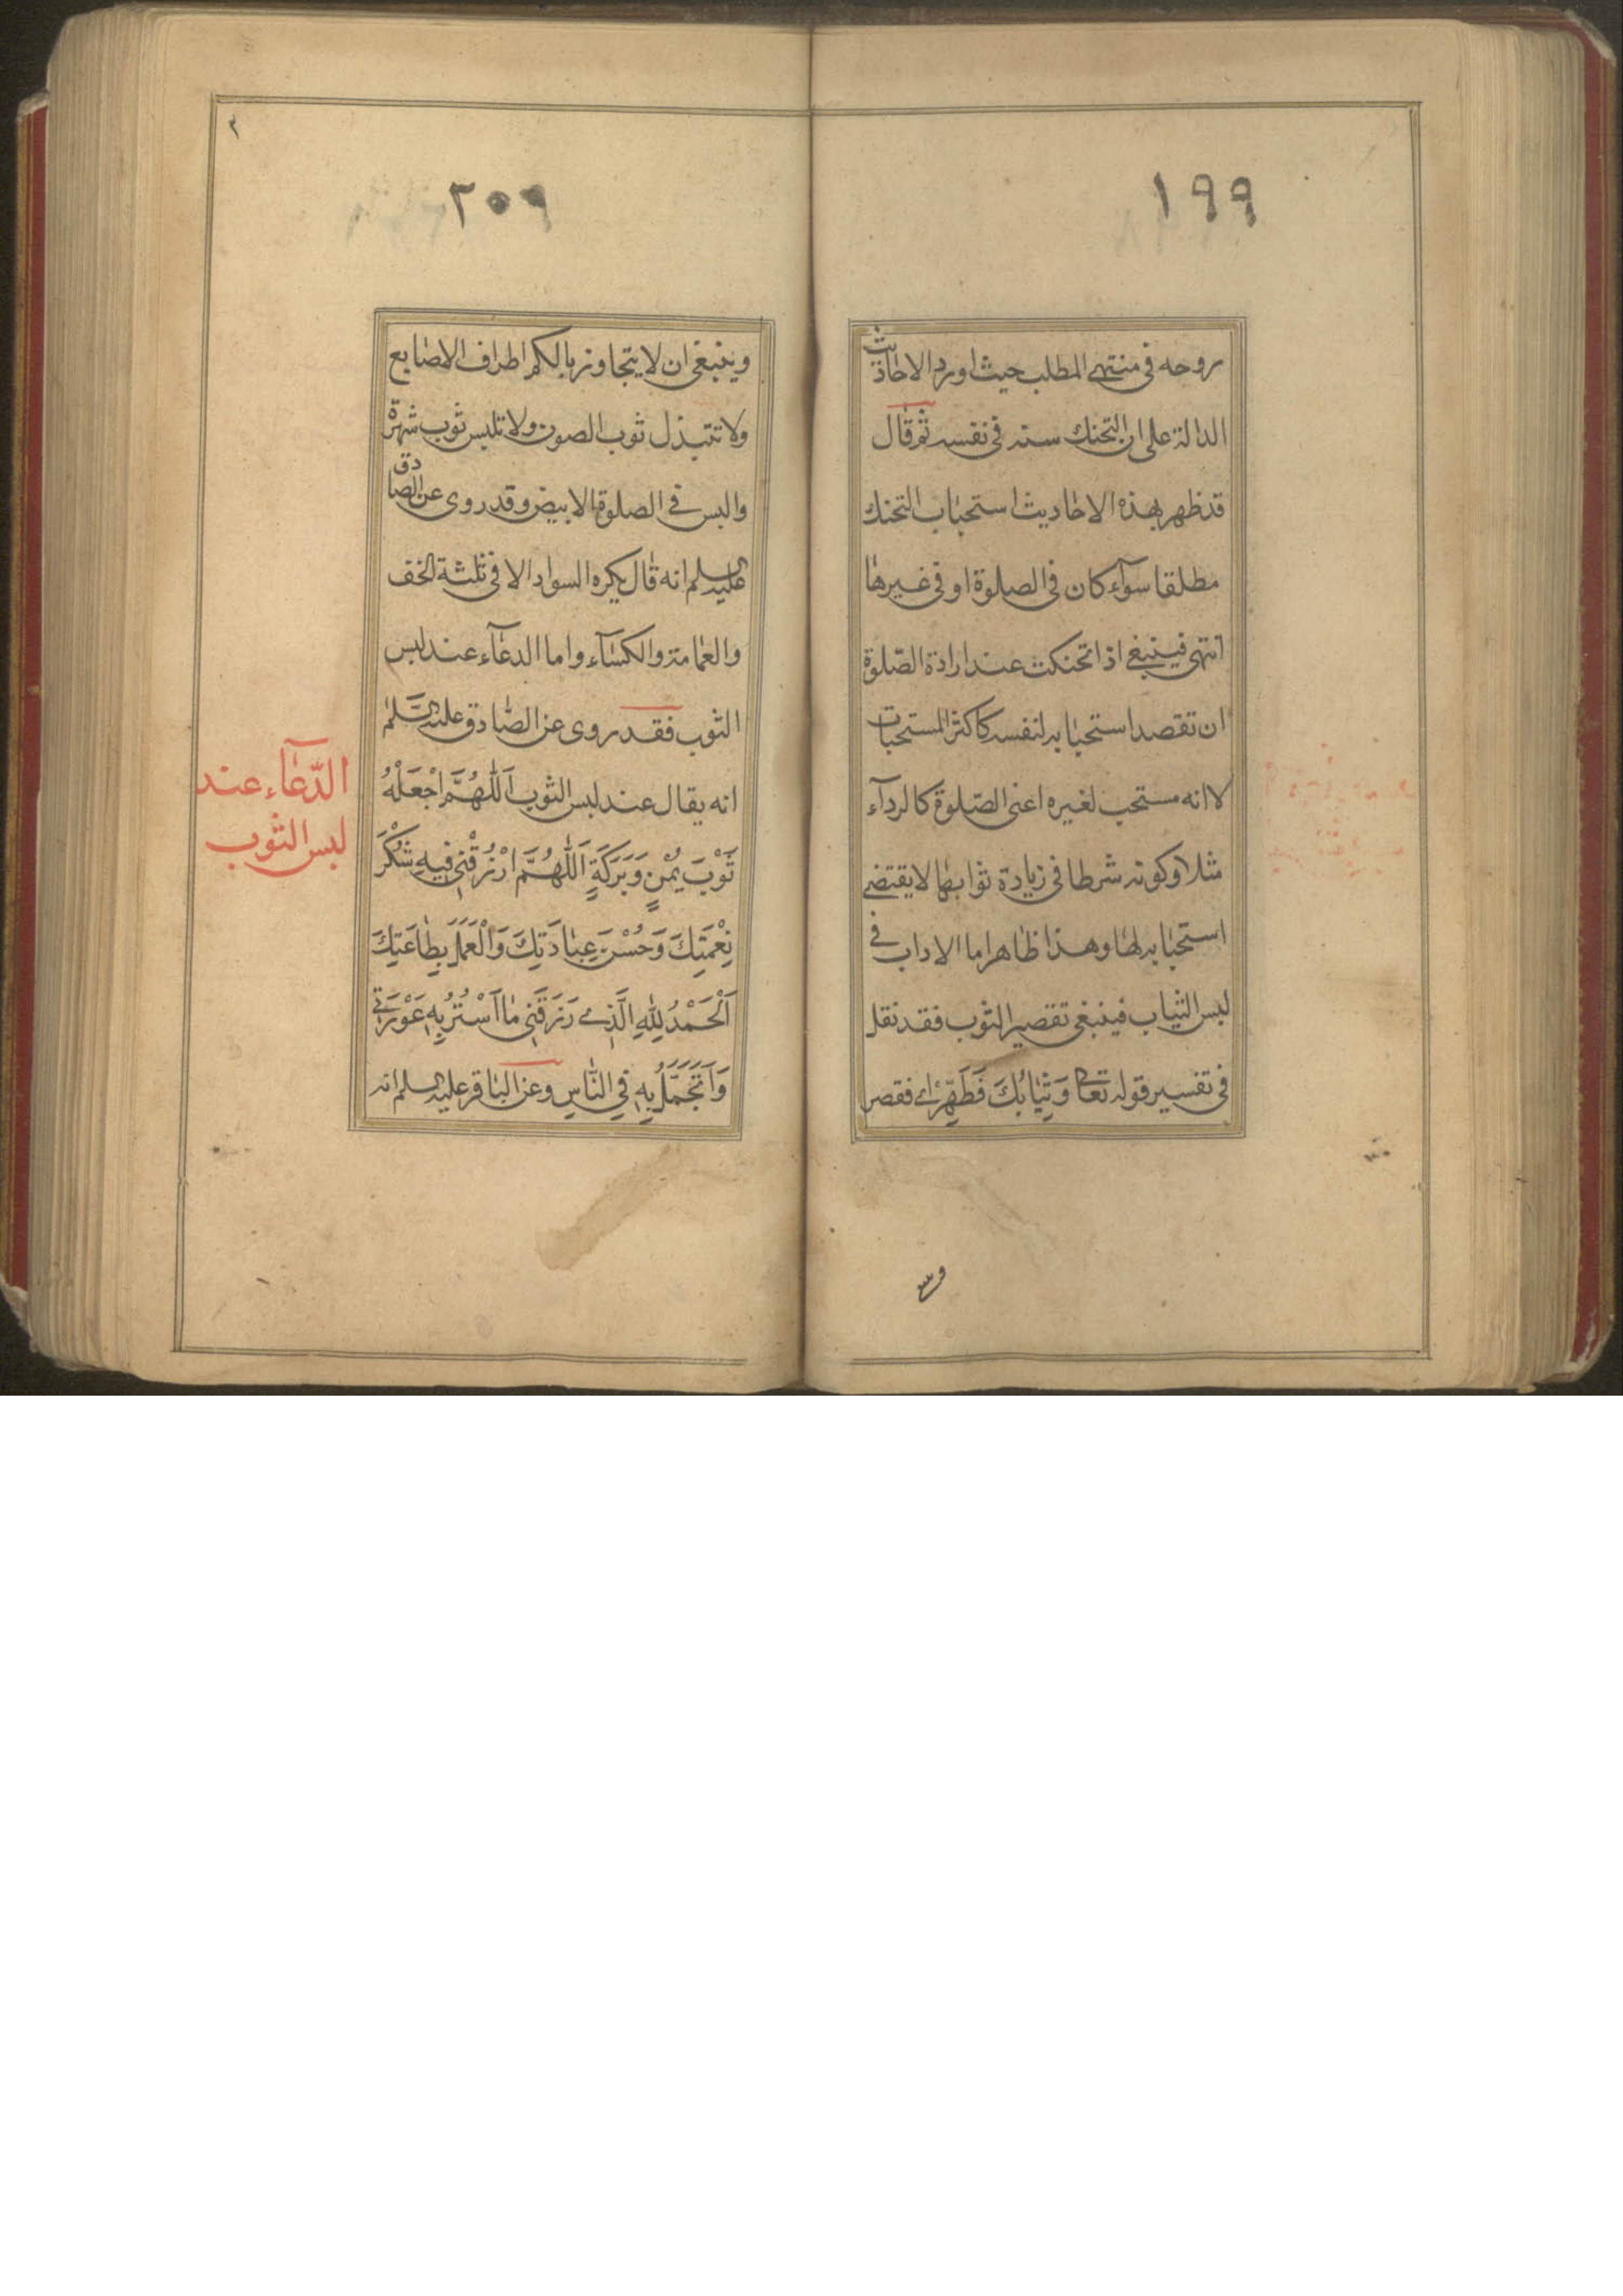 ١٩٩
روحه في منتهى المطلب حيث اورد الاحاديث
الدالة على ان التحنك سنة في نفسه ثم قال
قد ظهر بهذه الاحاديث استحباب التحنك
مطلقا سوآء كان في الصلوة او في غيرها
انتهى فينبغي اذا تحنكت عند ارادة الصّلوة
ان تقصد استحبابه لنفسه كاكثر المستحبات
لا انه مستحب لغيره اعنى الصّلوة كالردآء
مثلا وكونه شرطا في زيادة ثوابها لا يقتضي
استحبابه لها وهذا ظاهر اما الاداب في
لبس الثياب فينبغي تقصير الثوب فقد نقل
في تفسير قوله تعالى وَثِيَابُكَ فَطَهِّرْ اي فقصر
وين
٢٠٩
٢
وينبغي ان لا يتجاوز بالكم اطراف الاصابع
ولا تتبذل ثوب الصون ولا تلبس ثوب شهرة
والبس في الصلوة الابيض وقد روى عن الصادق
عليه السلم انه قال يكره السواد الا في ثلثة الخف
والعمامة والكسآء واما الدعآء عند لبس
الثوب فقد روى عن الصّادق عليه السّلم
انه يقال عند لبس الثوب اَللّٰهُمَّ اجْعَلْهُ
ثَوْبَ يُمْنٍ وَبَرَكَةٍ اَللّٰهُمَّ ارْزُقْنِي فِيهِ شُكْرَ
نِعْمَتِكَ وَحُسْنَ عِبَادَتِكَ وَالْعَمَلَ بِطَاعَتِكَ
اَلْحَمْدُ لِلّٰهِ الَّذِي رَزَقَنِي مَا اَسْتُرُ بِهِ عَوْرَتِي
وَاَتَجَمَّلُ بِهِ فِي النَّاسِ وعن الباقر عليه السلم انه
الدّعآء عند
لبس الثوب